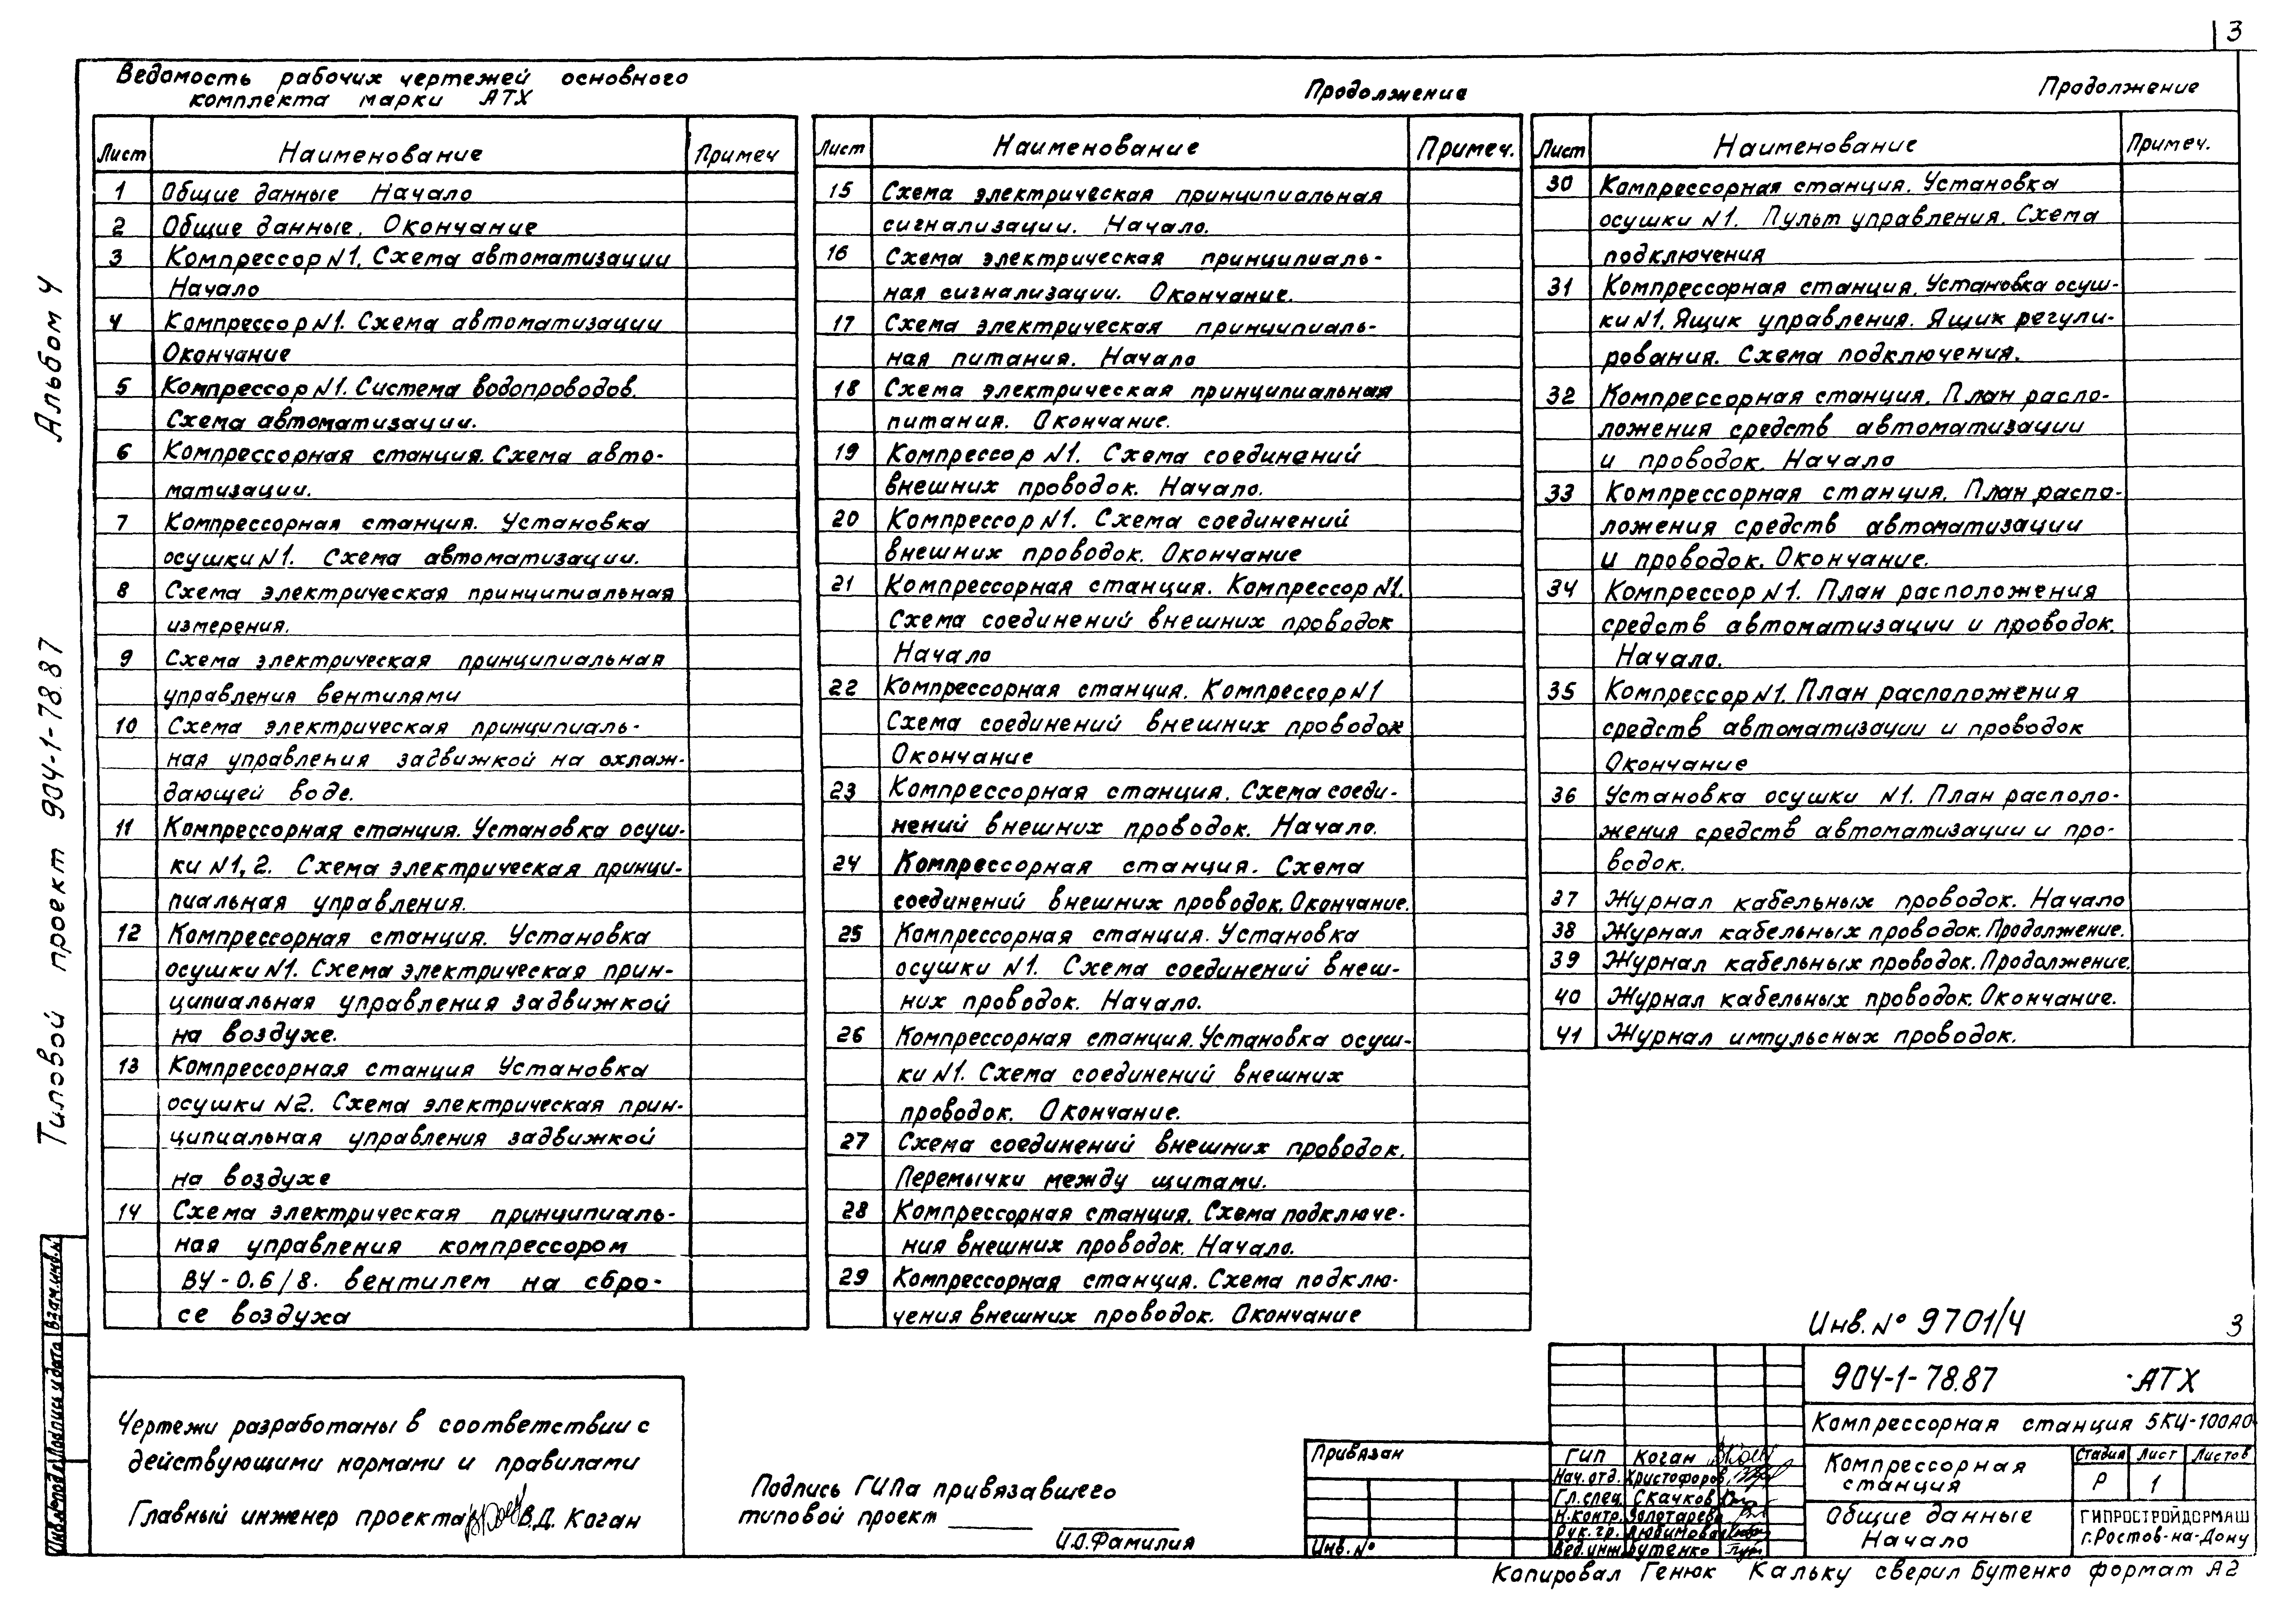 3
Ведомость рабочих чертежей основного
комплекта марки АТХ
Лист Наименование Примеч
1 Общие данные Начало
2 Общие данные. Окончание
3 Компрессор N1. Схема автоматизации
Начало
4 Компрессор N1. Схема автоматизации
Окончание
5 Компрессор N1. Система водопроводов.
Схема автоматизации.
6 Компрессорная станция. Схема авто-
матизации.
7 Компрессорная станция. Установка
осушки N1. Схема автоматизации.
8 Схема электрическая принципиальная
измерения.
9 Схема электрическая принципиальная
управления вентилями
10 Схема электрическая принципиаль-
ная управления задвижкой на охлаж-
дающей воде.
11 Компрессорная станция. Установка осуш-
ки N1, 2. Схема электрическая принци-
пиальная управления.
12 Компрессорная станция. Установка
осушки N1. Схема электрическая прин-
ципиальная управления задвижкой
на воздухе.
13 Компрессорная станция Установка
осушки N2. Схема электрическая прин-
ципиальная управления задвижкой
на воздухе
14 Схема электрическая принципиаль-
ная управления компрессором
ВУ-0.6/8. вентилем на сбро-
се воздуха
Продолжение
Лист Наименование Примеч.
15 Схема электрическая принципиальная
сигнализации. Начало.
16 Схема электрическая принципиаль-
ная сигнализации. Окончание.
17 Схема электрическая принципиаль-
ная питания. Начало
18 Схема электрическая принципиальная
питания. Окончание.
19 Компрессор N1. Схема соединений
внешних проводок. Начало.
20 Компрессор N1. Схема соединений
внешних проводок. Окончание
21 Компрессорная станция. Компрессор N1.
Схема соединений внешних проводок
Начало
22 Компрессорная станция. Компрессор N1
Схема соединений внешних проводок
Окончание
23 Компрессорная станция. Схема соеди-
нений внешних проводок. Начало.
24 Компрессорная станция. Схема
соединений внешних проводок. Окончание.
25 Компрессорная станция. Установка
осушки N1. Схема соединений внеш-
них проводок. Начало.
26 Компрессорная станция. Установка осуш-
ки N1. Схема соединений внешних
проводок. Окончание.
27 Схема соединений внешних проводок.
Перемычки между щитами.
28 Компрессорная станция. Схема подключе-
ния внешних проводок. Начало.
29 Компрессорная станция. Схема подклю-
чения внешних проводок. Окончание
Продолжение
Лист Наименование Примеч.
30 Компрессорная станция. Установка
осушки N1. Пульт управления. Схема
подключения
31 Компрессорная станция. Установка осуш-
ки N1. Ящик управления. Ящик регули-
рования. Схема подключения.
32 Компрессорная станция. План распо-
ложения средств автоматизации
и проводок. Начало
33 Компрессорная станция. План распо-
ложения средств автоматизации
и проводок. Окончание.
34 Компрессор N1. План расположения
средств автоматизации и проводок.
Начало.
35 Компрессор N1. План расположения
средств автоматизации и проводок
Окончание
36 Установка осушки N1. План располо-
жения средств автоматизации и про-
водок.
37 Журнал кабельных проводок. Начало
38 Журнал кабельных проводок. Продолжение.
39 Журнал кабельных проводок. Продолжение.
40 Журнал кабельных проводок. Окончание.
41 Журнал импульсных проводок.
Альбом 4
Типовой проект 904-1-78.87
Взам.инв.N
Подпись и дата
Инв.N подл.
Чертежи разработаны в соответствии с
действующими нормами и правилами
Главный инженер проекта В.Д. Коган
Подпись ГИПа привязавшего
типовой проект
И.О.Фамилия
Инв. № 9701/4 3
904-1-78.87 -АТХ
Компрессорная станция 5КЦ-100А0
Компрессорная
станция
Стадия Лист Листов
Р 1
Общие данные
Начало
ГИПРОСТРОЙДОРМАШ
г.Ростов-на-Дону
Привязан
Инв. №
ГИП Коган
Нач.отд. Христофоров
Гл.спец. Скачков
Н.контр. Золотарева
Рук.гр. Любимова
Вед.инж. Бутенко
Копировал Генюк Кальку сверил Бутенко формат А2